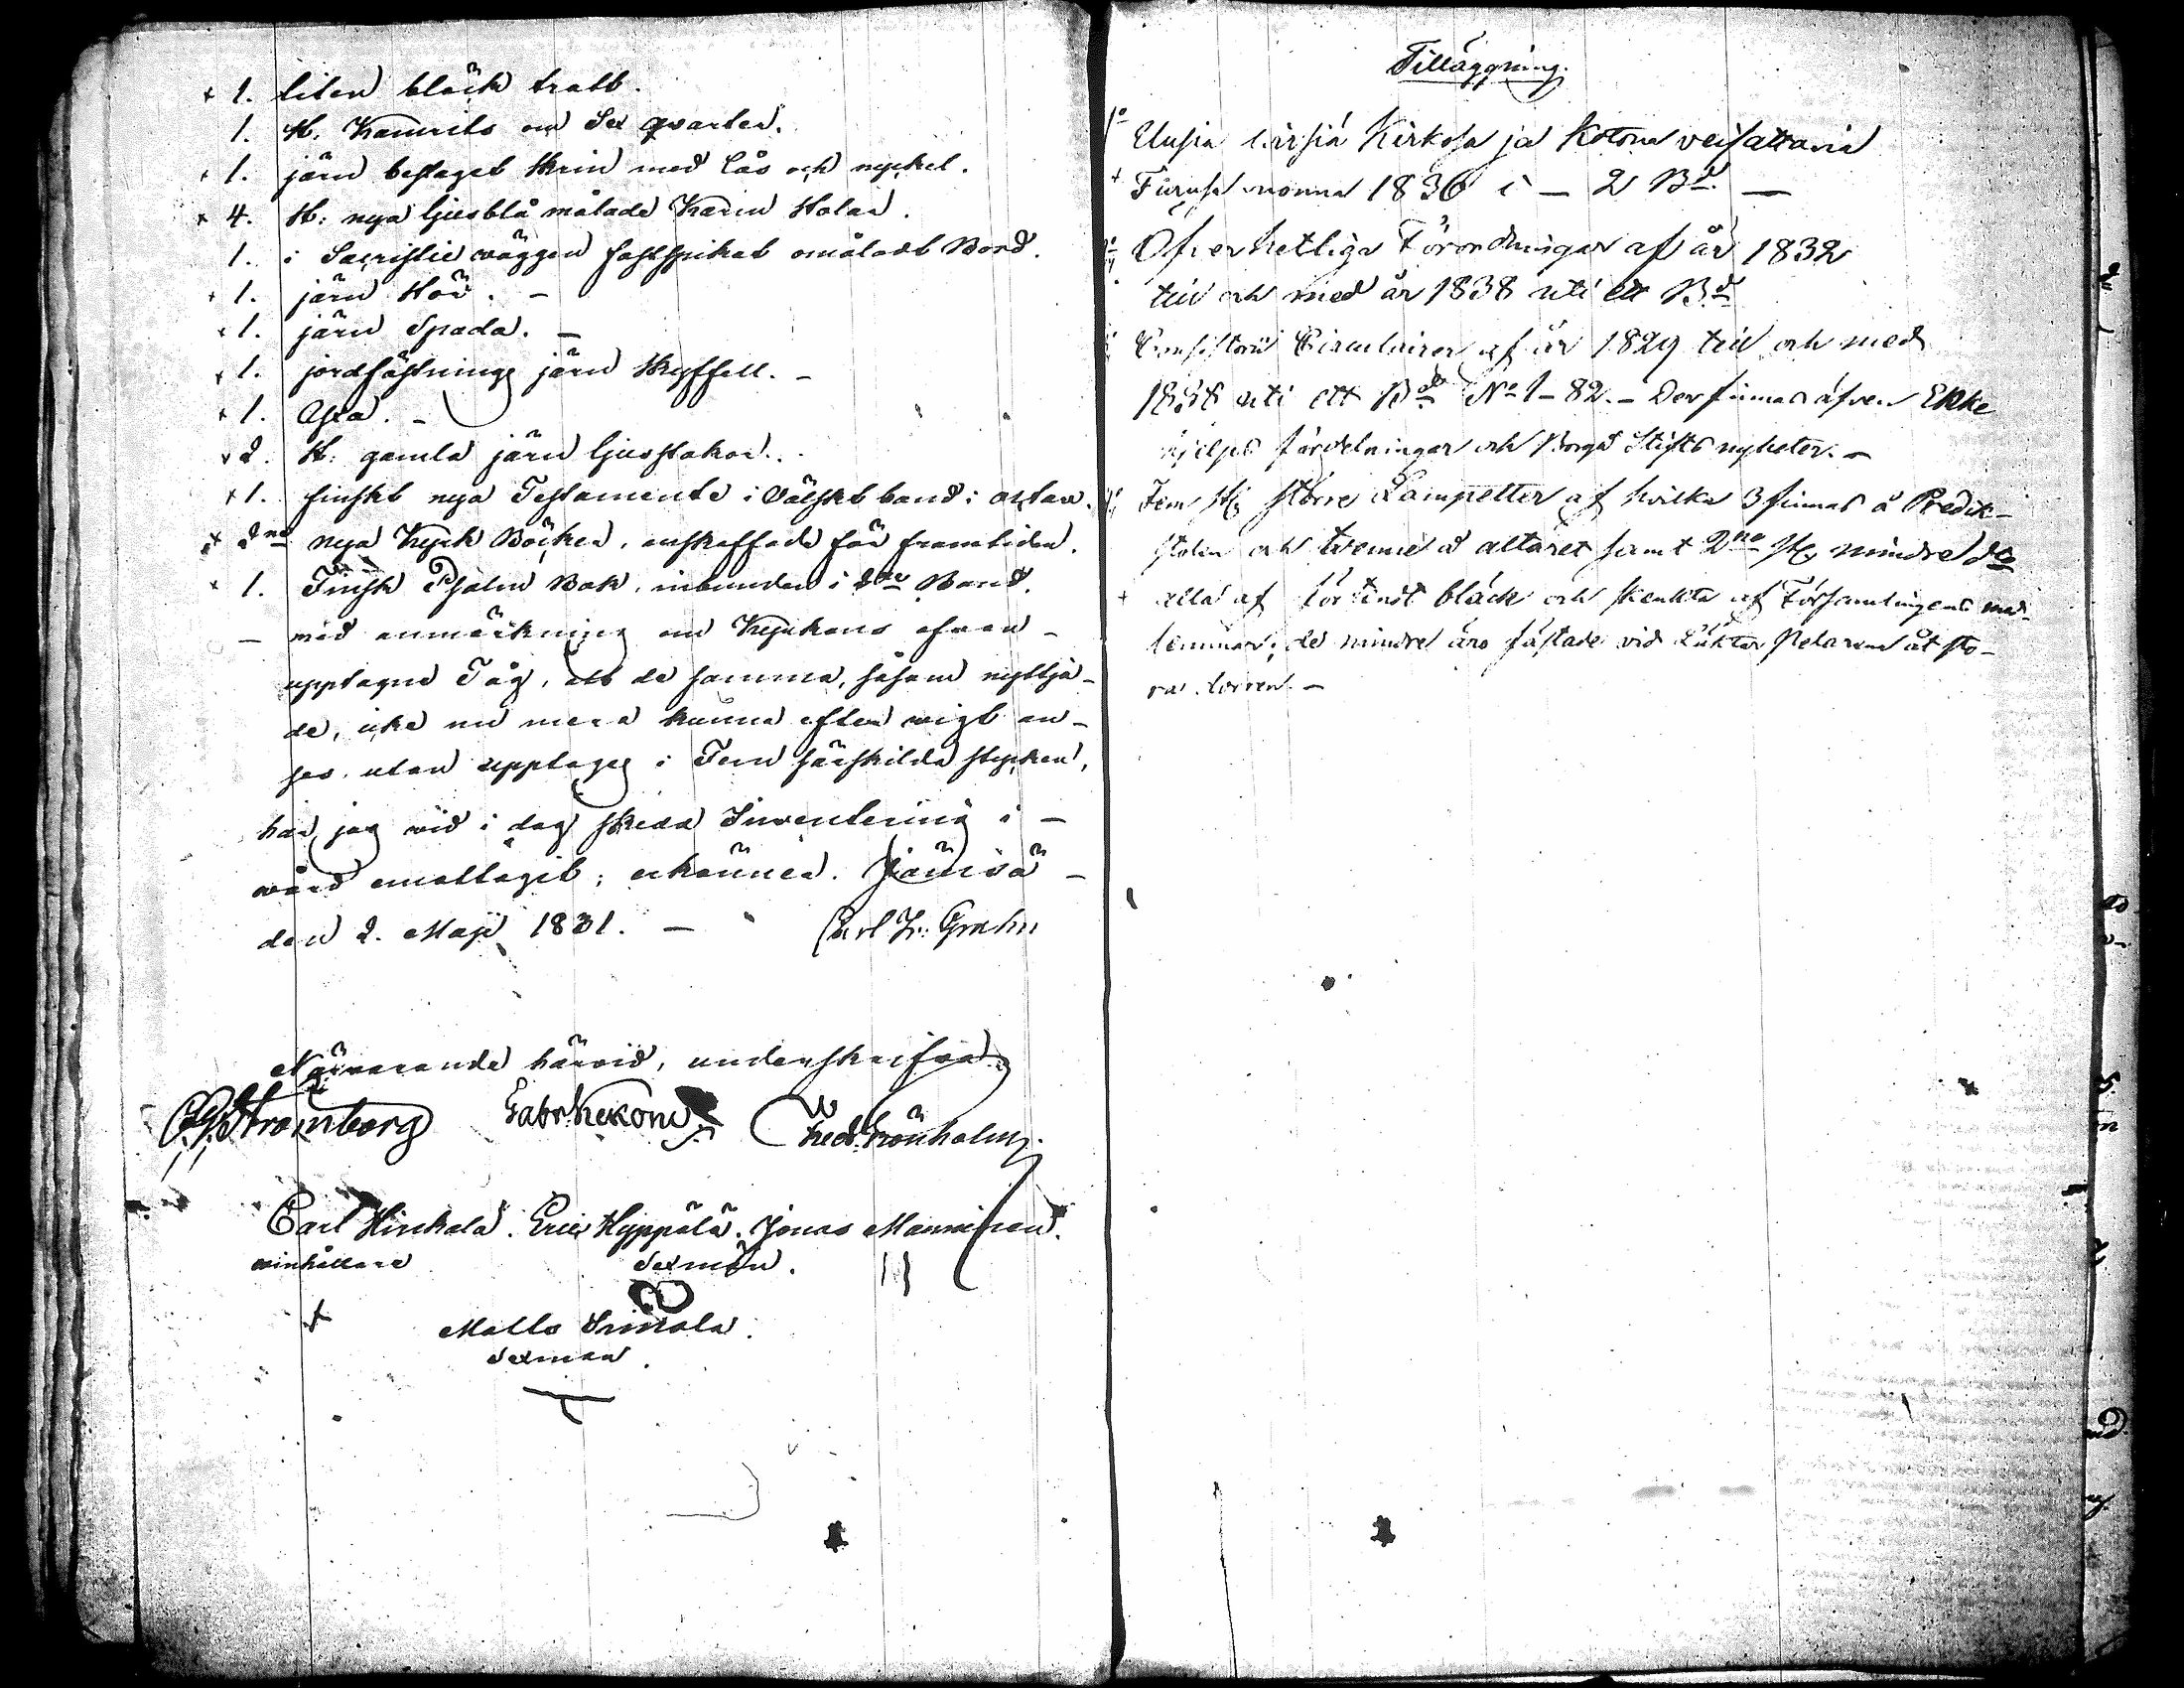 + 1. liten bläck tratt.
1. st. Kannrits om Sex qvarter.
+ 1. järn beslaget Skrin med lås och nyckel.
+ 4. St: nya ljusblå målade Karm Stolar.
1. i Sacristie wäggen fastspikat omåladt Bord.
+ 1. järn Stör. -
+ 1. järn Spada. -
+ 1. jordfästnings järn Skyffell. -
+ 1. Yxa. -
+ 2. St: gamla järn ljusstakar.
+ 1. finskt nya Testamente i Välskt band: octav.
+ 2ne nya Kyrk Böcker, anskaffade för framtiden.
+ 1. Finsk Psalm Bok, inbunden i dto Band.
- med anmärkning om Kyrkans ofvan -
upptagne Tåg, att de samma, såsom nyttja-
de, icke nu mera kunna efter wigt an-
ses utan upptages i Fem särskilda stycken,
har jag wid i dag skedd Inventering i -
wård emottagit; erkänner. Jämsä -
den 2. Maji 1831. - Carl Fr: Grahn
Närvarande härvid, underskrifva
Strömborg Gabr. Kekoni Fred. Grönholm.
Carl Hinkala. Eric Hyppölä. Jonas Manninen.
winhållare Sexmän.
Matts
Sexman.
Tilläggning.
1o Uusia Kirkosa ja Kotona veisattavia
+ 1836 i - 2 Bd. -
Öfverhetliga Förordningar af år 1832
till och med år 1838 uti ett Bd
Consistorii Circulairer af år 1829 till och med
1838 uti ett Bd No 1-82. - Der finnas äfven Ekke
hjelps fördelningar och Borgå Stifts nyheter. -
Fem st; större Lampetter af hvilka 3 finnas å Predik-
stolen och tvenne å altaret samt 2ne st; mindre do
+ alla af förtendt bläck och skenkta af Församlingens med-
lemmar; de mindre äro fästade vid Läktar Pelarena åt sto-
ra dörren. -